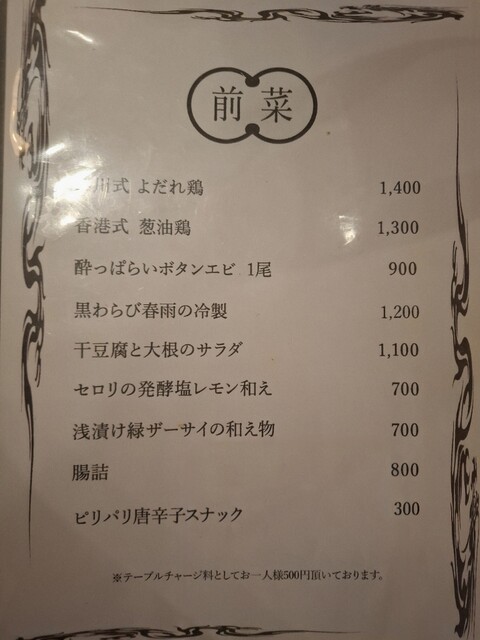 前菜
川式 よだれ鶏 1,400
香港式 葱油鶏 1,300
酔っぱらいボタンエビ 1尾 900
黒わらび春雨の冷製 1,200
干豆腐と大根のサラダ 1,100
セロリの発酵塩レモン和え 700
浅漬け緑ザーサイの和え物 700
腸詰 800
ピリパリ唐辛子スナック 300
※テーブルチャージ料としてお一人様500円頂いております。